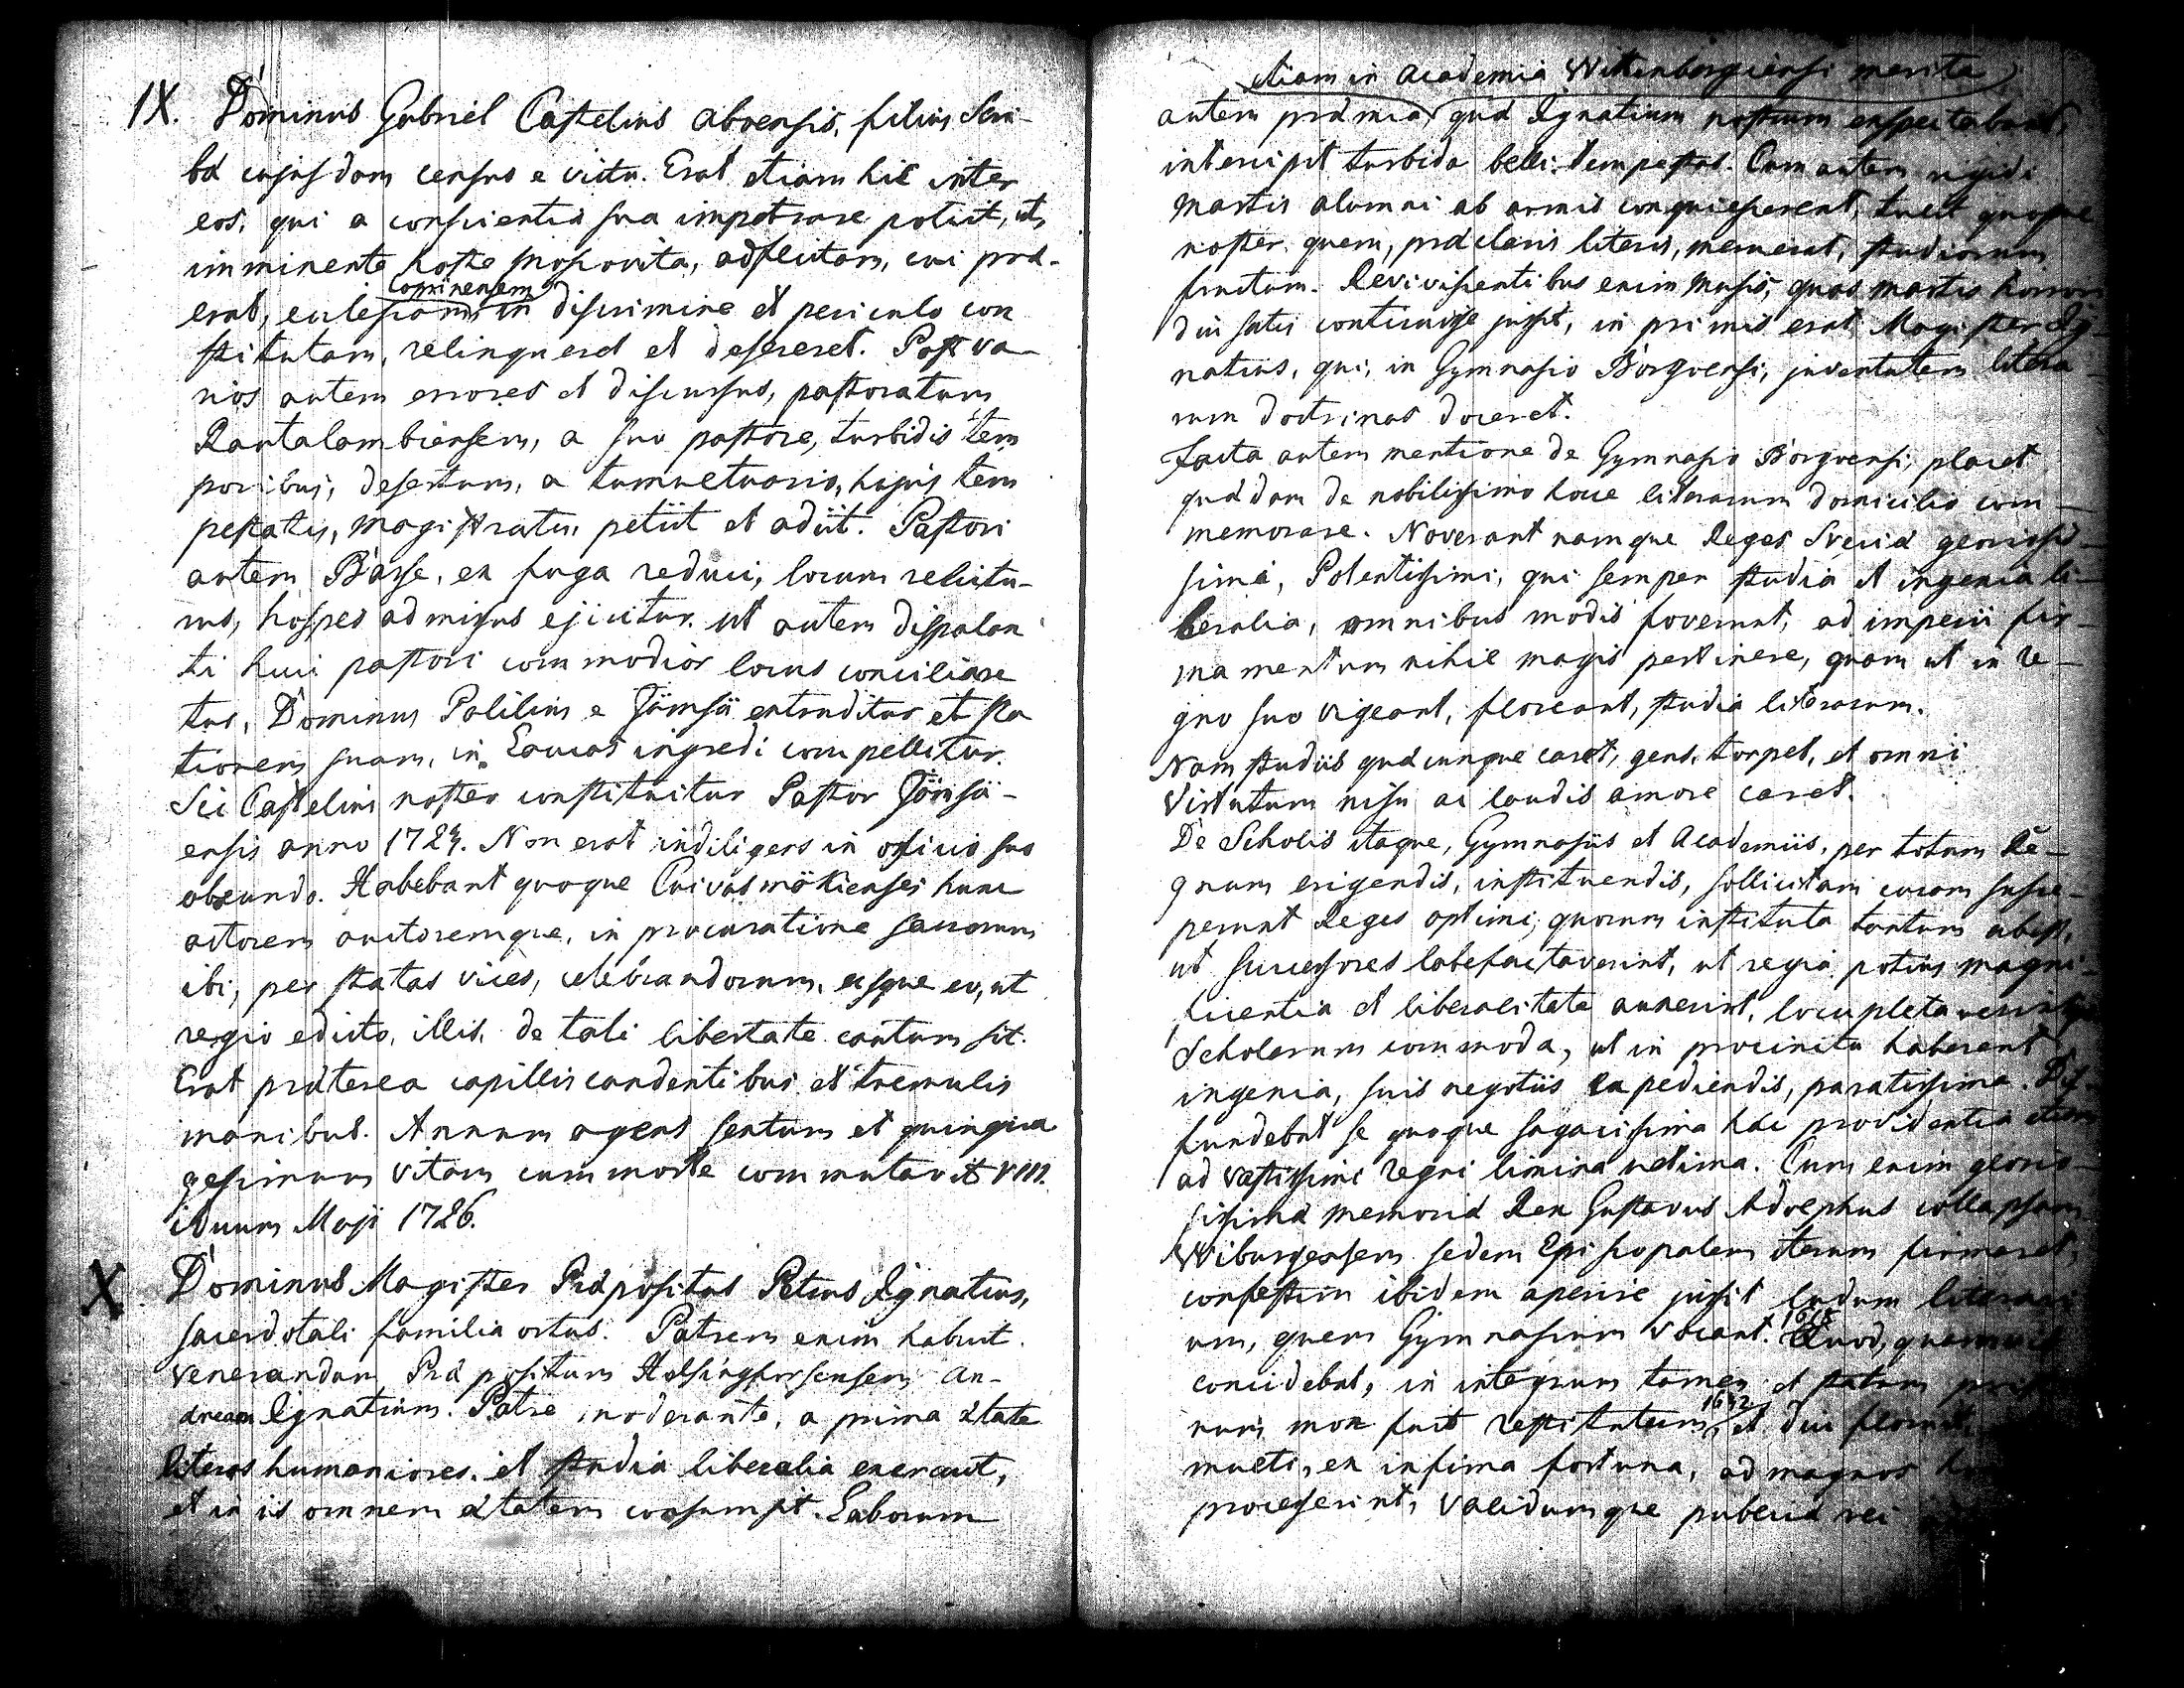 IX. Dominus Gabriel Castelius Aboensis, filius Scri-
bæ cujusdam census e victu. Erat etiam hic inter
eos, qui a conscientia sua impetrare potuit, ut,
imminente hoste proposita, adflictam, cui præ-
erat, ecclesiam Coprinensem in discrimine et periculo con
stitutam, relinqueret et desereret. Post va-
rios autem errores et discursus, pastoratum
Rautalambiensem, a suo pastore, turbidis tem
poribus, desertum, a tumultuario, hujus tem
pestatis, magistratu, petiit et adiit. Pastori
autem Basse, ex fuga reduci, locum relictu-
rus, hospes admissus ejicitur. Ut autem dispalan
ti huic pastori commodior locus conciliare
tur, Dominus Polilius e Jämsä extruditur et sta
tionem suam, in Loucas ingredi compellitur.
Sic Castelius noster constituitur Pastor Jämsä-
ensis anno 1724. Non erat indiligens in officio suo
obeundo. Habebant quoque Cuivasmäkienses hunc
actorem auctoremque, in procuratione sacrorum
ibi, per statas vices, celebrandorum, eisque eo, ut
regio edicto, illis, de tali libertate cautum sit.
Erat præterea capillis candentibus et tremulis
manibus. Annum agens sextum et quinqua
gesimum vitam cum morte commutavit VIII.
iduum Maji 1726.
X Dominus Magister Præpositus Petrus Ignatius,
sacerdotali familia ortus. Patrem enim habuit
venerandum Præpositum Helsingforsensem An-
dream Ignatium. Patre moderante, a prima ætate
literas humaniores, et studia liberalia exercuit,
et in iis omnem ætatem consumpsit. Laborum
etiam in Academia Wittenbergiensi merita
autem præmia, quæ Ignatium nostrum exspectabant,
intercipit turbida belli tempestas. Cum autem rigidi
Martis alumni ab armis conquiescerent, tulit quoque
noster, quem, præclaris literis, meruerat, studiorum
fructum. Reviviscentibus enim Musis, quas Martis horror
diu satis conticuisse jussit, in primis erat Magister Ig-
natius, qui, in Gymnasio Borgoensi, juventutem litera-
rum doctrinas doceret.
Facta autem mentione de Gymnasio Borgoensi, placet
quædam de nobilissimo hocce literarum domicilio com-
memorare. Noverant namque Reges Sveciæ gloriosis-
simi, Potentissimi, qui semper studia et ingenia li-
beralia, omnibus modis foverunt, ad imperii fir-
mamentum nihil magis pertinere, quam ut in re-
gno suo vigeant, floreant, studia literarum.
Nam studiis quæcunque caret, gens, torpet, et omni
Virtutum nisu ac laudis amore caret.
De Scholis itaque, Gymnasiis et Academiis, per totum Re-
gnum erigendis, instituendis, sollicitam curam susce-
perunt Reges optimi, quorum instituta tantum abest,
ut successores labefactaverint, ut regia potius magni-
ficentia et liberalitate auxerint, locupletaverintque
Scholarum commoda, ut in procinctu haberent
ingenia, suis negotiis expediendis, paratissima. Dif-
fundebat se quoque sagacissima hæc providentia etiam
ad vastissimi regni limina ultima. Cum enim glorio-
sissimæ memoriæ Rex Gustavus Adolphus collapsam
Wiburgensem sedem Episcopalem iterum firmaret,
confestim ibidem aperire jussit ludum literari
um, quem Gymnasium vocant. Quod, quamvis
concidebat, in integrum tamen et statum
num mox fuit restitutum 1642, et diu floruit,
multi, ex infima fortuna, ad magnos
processerint, validumque publicæ rei